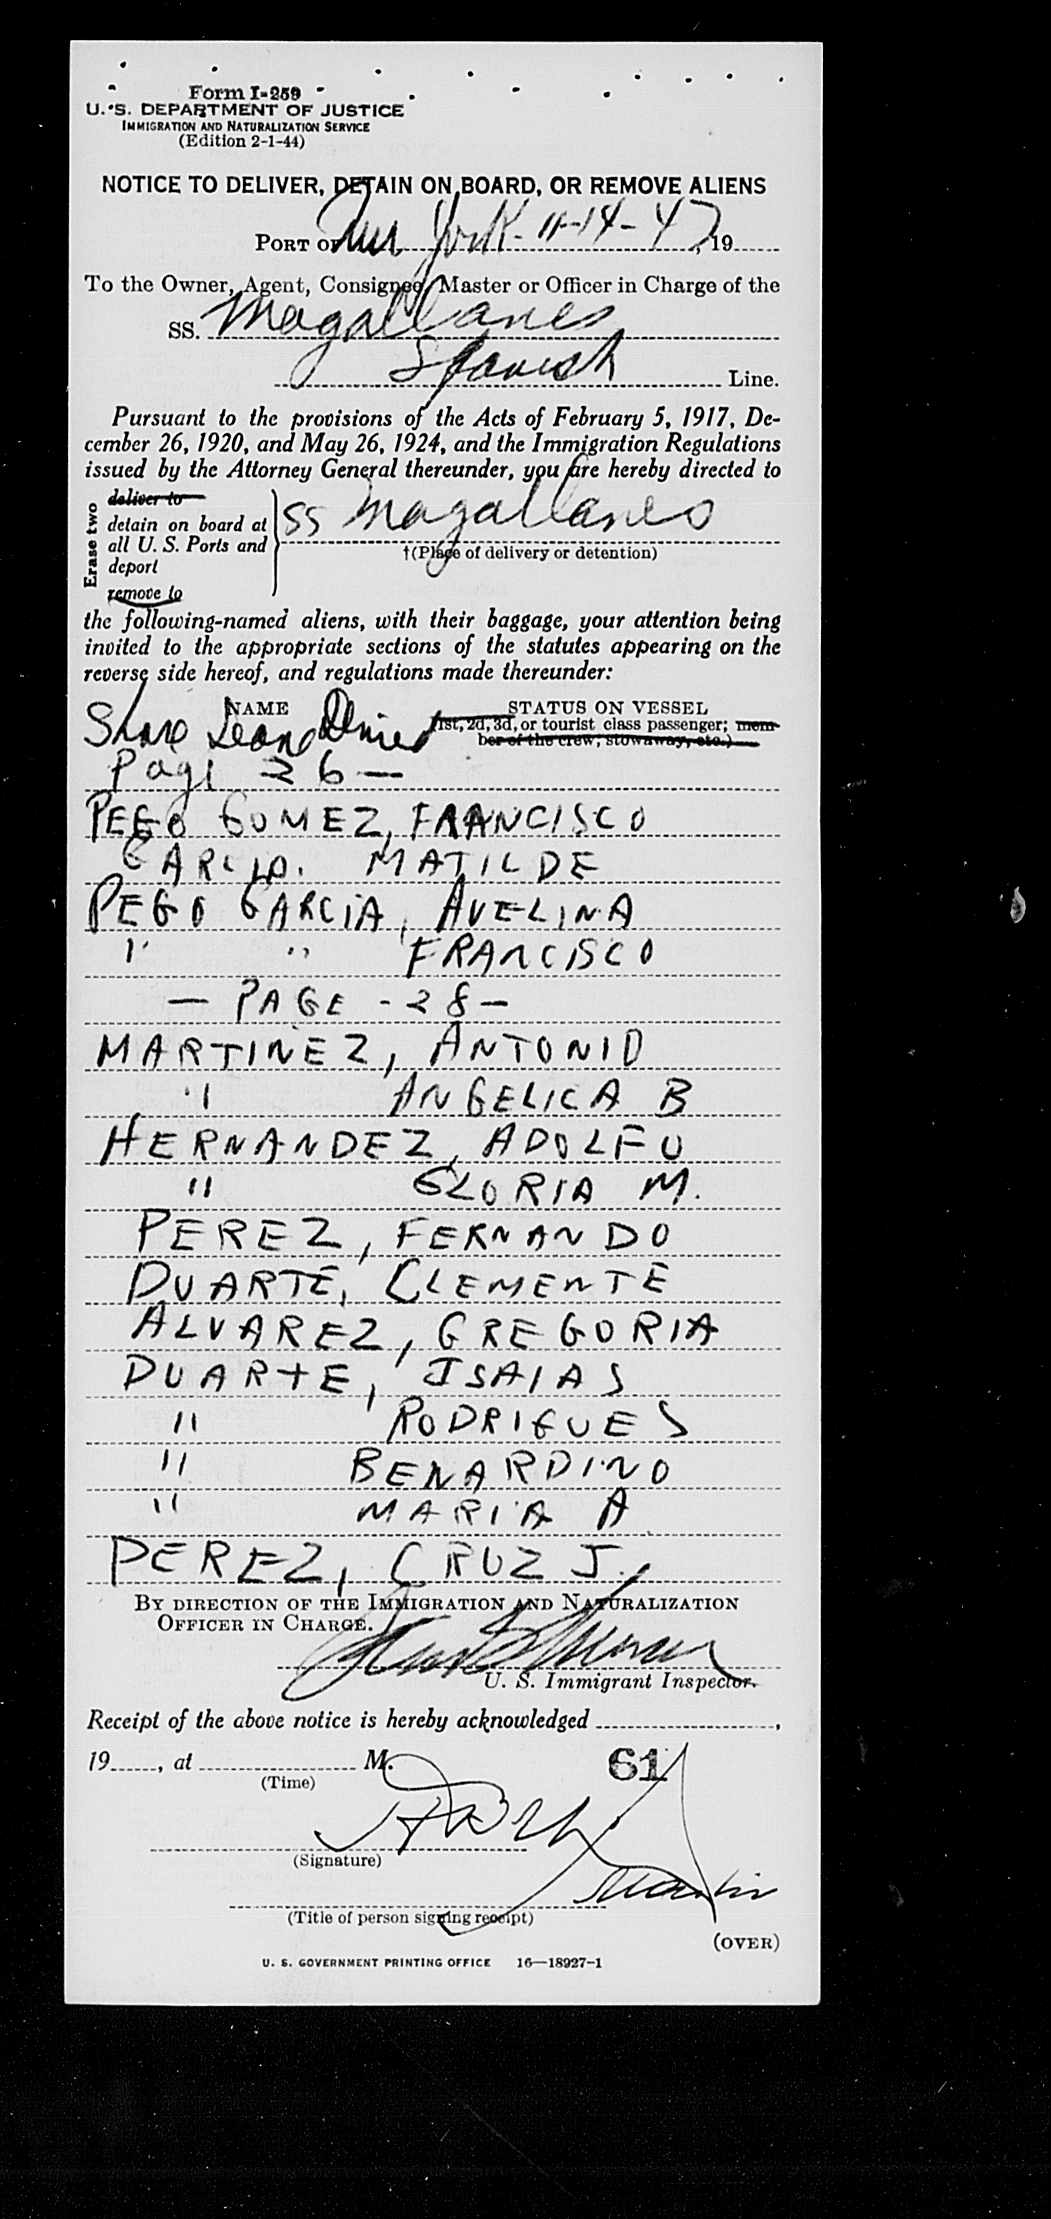 Form I-259
U. S. DEPARTMENT OF JUSTICE
IMMIGRATION AND NATURALIZATION SERVICE
(Edition 2-1-44)
NOTICE TO DELIVER, DETAIN ON BOARD, OR REMOVE ALIENS
PORT OF New York - 11-14-47, 19
To the Owner, Agent, Consignee, Master or Officer in Charge of the
SS. Magallanes
Spanish Line.
Pursuant to the provisions of the Acts of February 5, 1917, De-
cember 26, 1920, and May 26, 1924, and the Immigration Regulations
issued by the Attorney General thereunder, you are hereby directed to
Erase two
deliver to
detain on board at
all U. S. Ports and
deport
remove to
SS Magallanes
†(Place of delivery or detention)
the following-named aliens, with their baggage, your attention being
invited to the appropriate sections of the statutes appearing on the
reverse side hereof, and regulations made thereunder:
NAME STATUS ON VESSEL
(1st, 2d, 3d, or tourist class passenger; mem-
ber of the crew; stowaway, etc.)
Shore Leave Denied
Page 26 —
PEGO GOMEZ, FRANCISCO
GARCIA. MATILDE
PEGO GARCIA, AVELINA
" " FRANCISCO
— PAGE - 28 —
MARTINEZ, ANTONIO
" ANGELICA B
HERNANDEZ, ADOLFO
" GLORIA M.
PEREZ, FERNANDO
DUARTE, CLEMENTE
ALVAREZ, GREGORIA
DUARTE, ISAIAS
" RODRIGUES
" BENARDINO
" MARIA A
PEREZ, CRUZ J.
BY DIRECTION OF THE IMMIGRATION AND NATURALIZATION
OFFICER IN CHARGE.
U. S. Immigrant Inspector.
Receipt of the above notice is hereby acknowledged ,
19 , at M.
(Time)
61
(Signature)
(Title of person signing receipt)
(OVER)
U. S. GOVERNMENT PRINTING OFFICE 16—18927-1